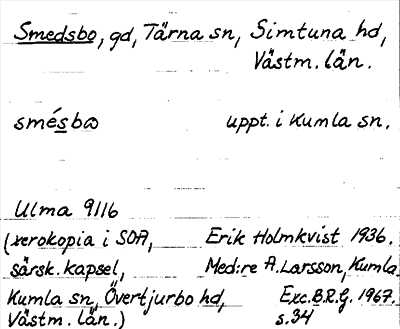 Smedsbo, gd, Tärna sn, Simtuna hd,
Västm. län.
smésbω uppt. i Kumla sn.
Ulma 9116
(xerokopia i SOA, Erik Holmkvist 1936.
särsk. kapsel, Med:re A. Larsson, Kumla.
Kumla sn, Övertjurbo hd, Exc. B.R.G. 1967.
Västm. län.) s.34